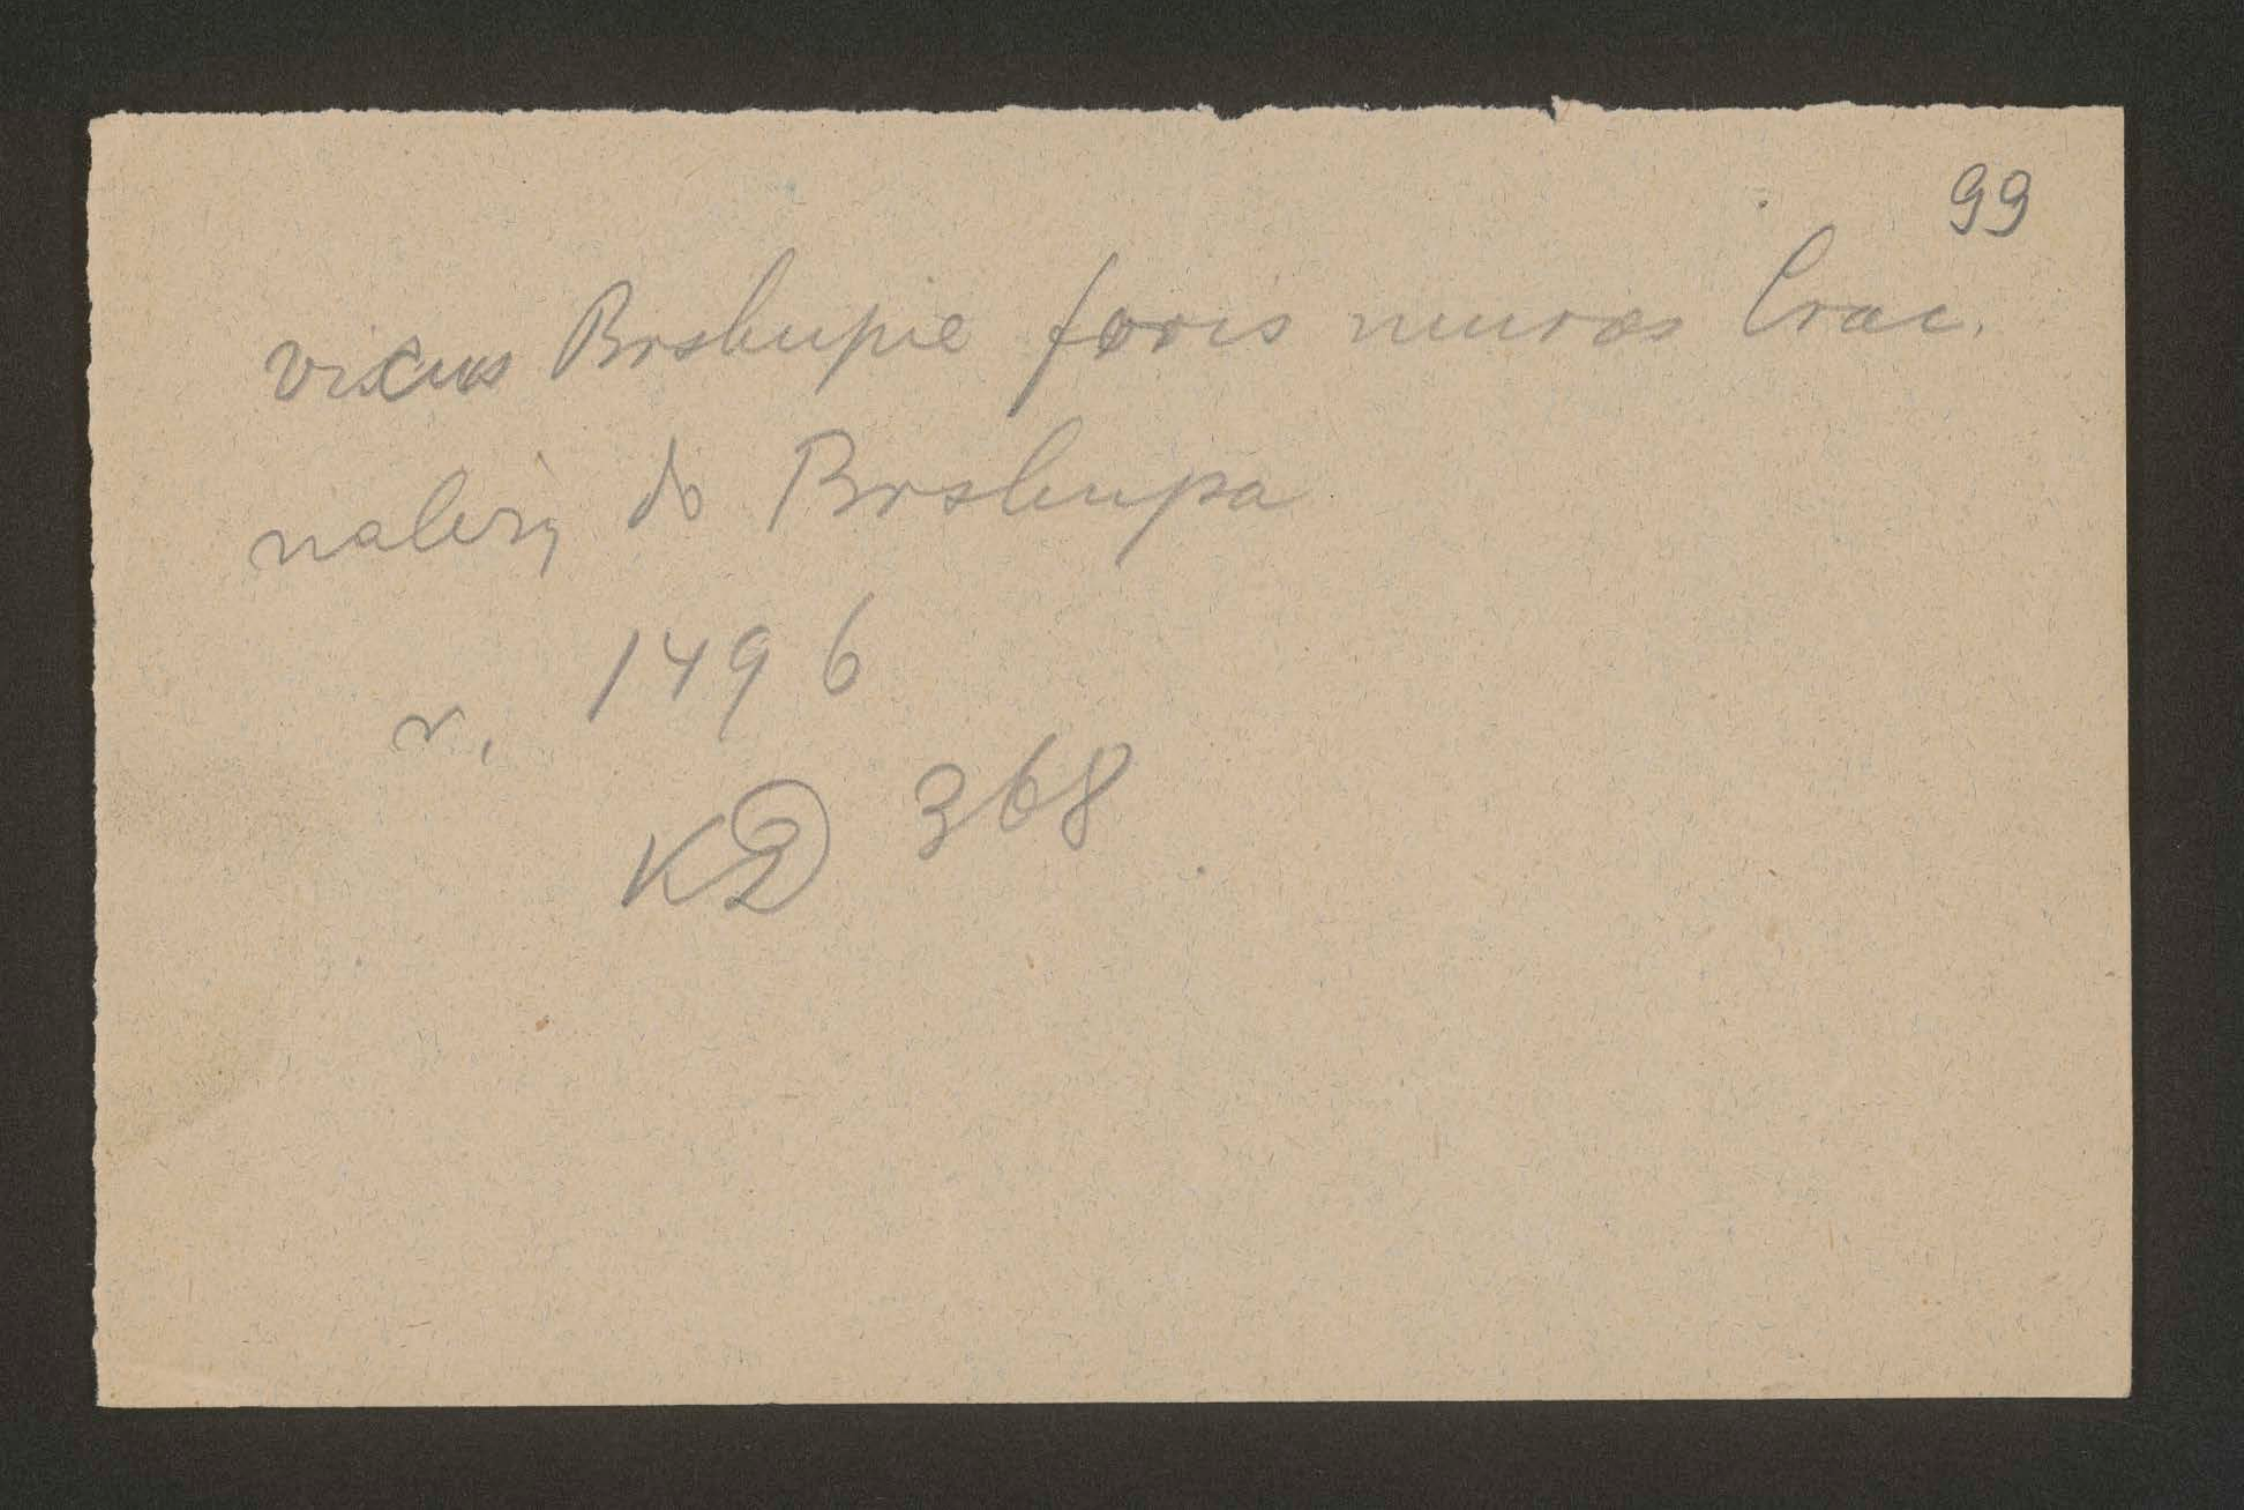 99
vicus Biskupie foris muros Crac.
należy do Biskupa
r. 1496
KD 368